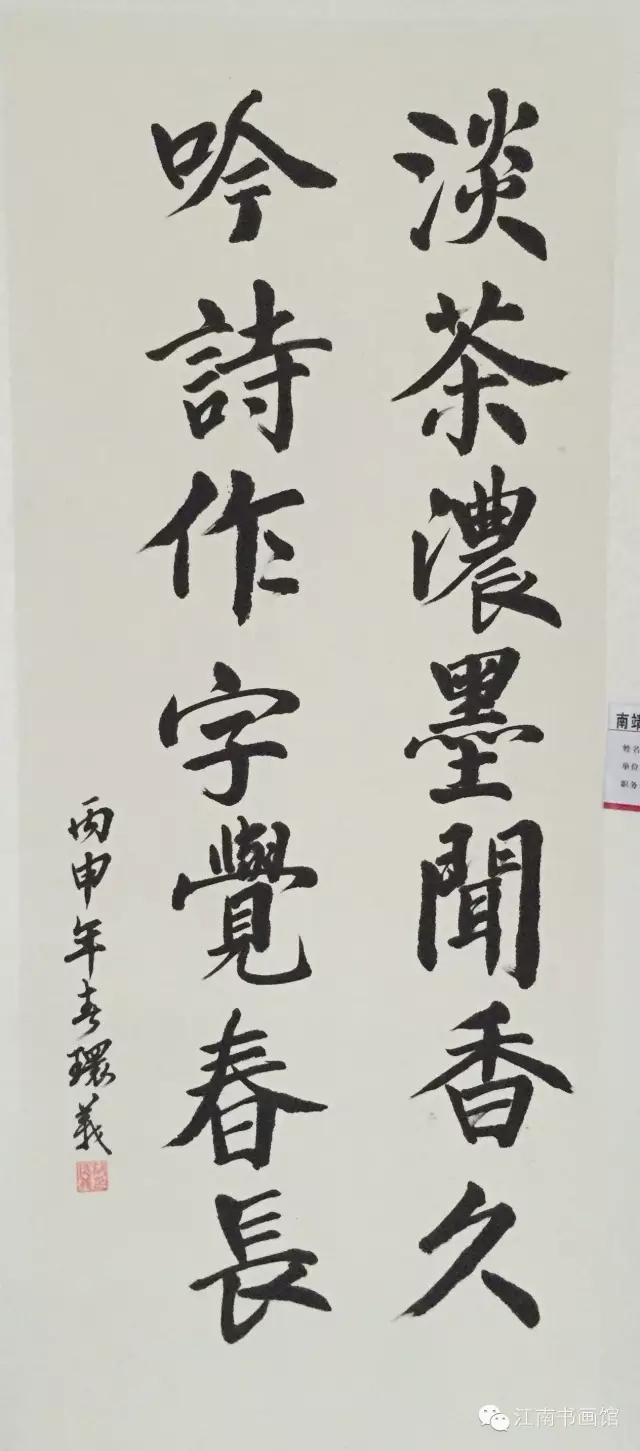 淡茶濃墨聞香久
吟詩作字覺春長
丙申年春環義
南靖
姓名
单位
职务
江南书画馆